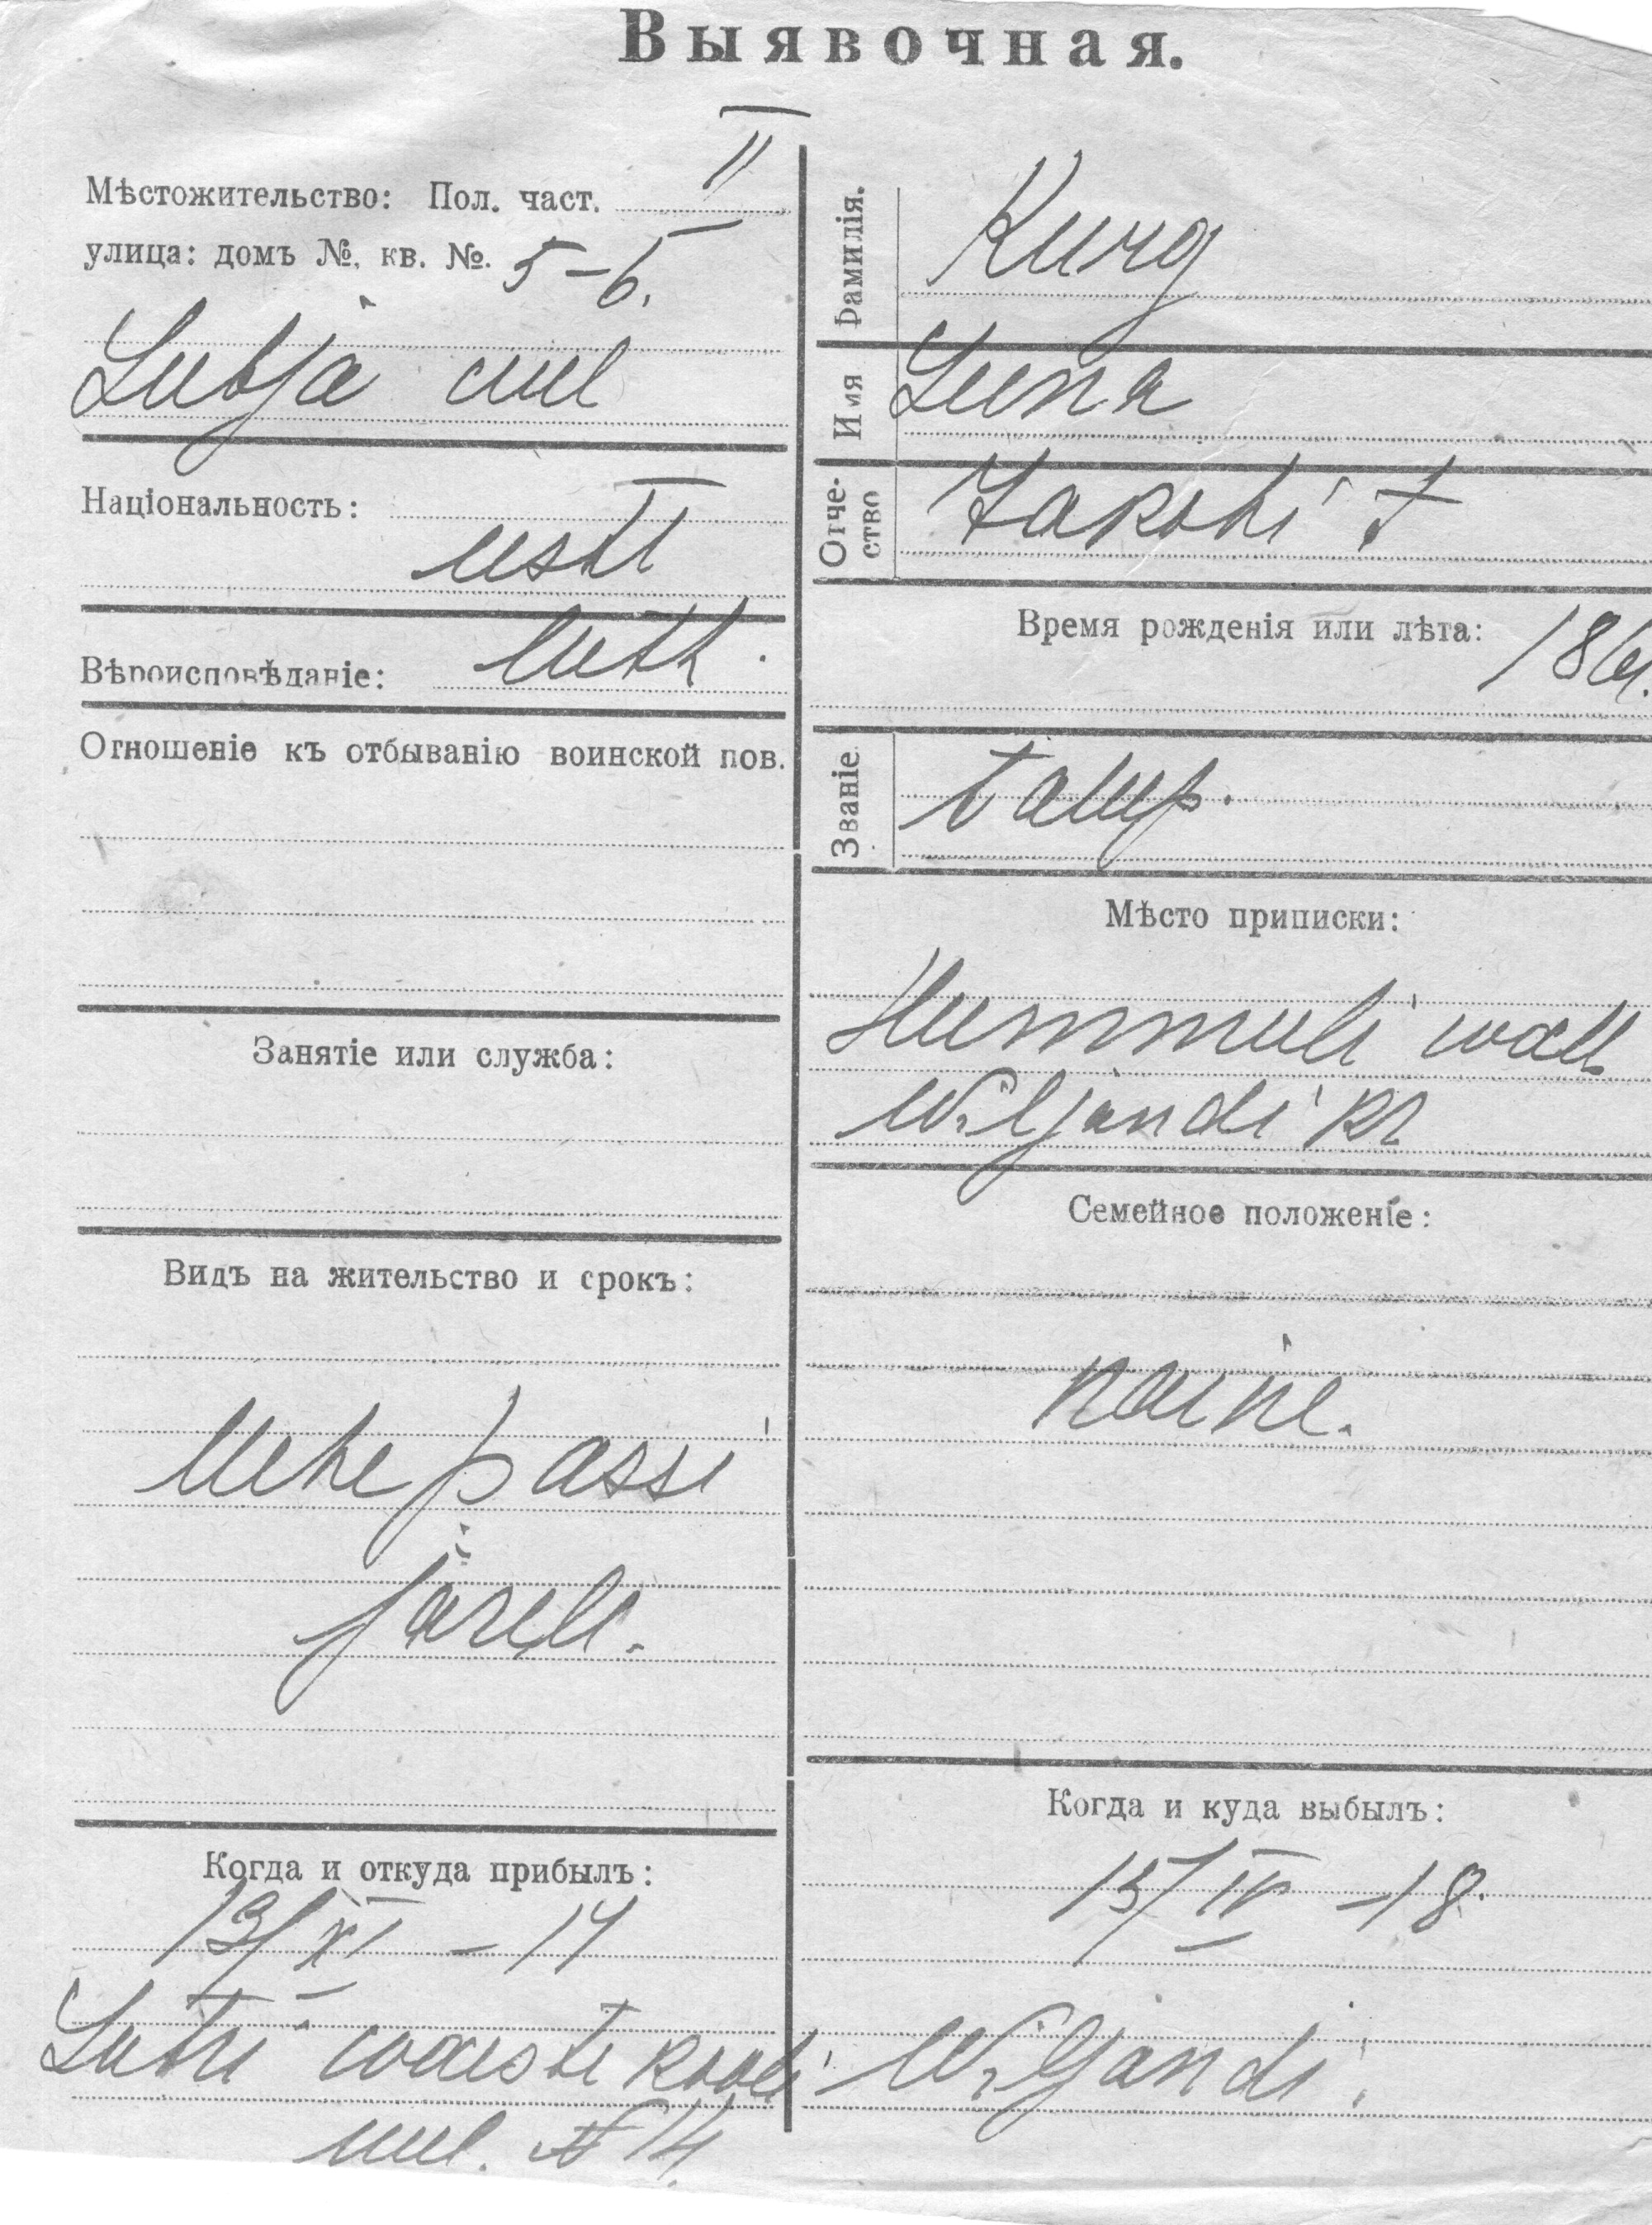 Выявочная.
Мѣстожительство: Пол. част. II
улица: домъ №, кв. №. 5-6.
Lubja uul
Національность:
eesti
Вѣроисповѣданіе: luth.
Отношеніе къ отбыванію воинской пов.
Занятіе или служба:
Видъ на жительство и срокъ:
Mehe passi
järele.
Когда и откуда прибылъ:
13/XI -17
Lutri waeste kooli
uul. № 14.
Фамилія. Kurg
Имя Leena
Отчество Jakobi t
Время рожденія или лѣта:
Званіе talup.
Мѣсто приписки:
Hummuli wall
Wiljandi kr
Семейное положеніе:
naine.
Когда и куда выбылъ:
15/IV -18.
Wiljandi